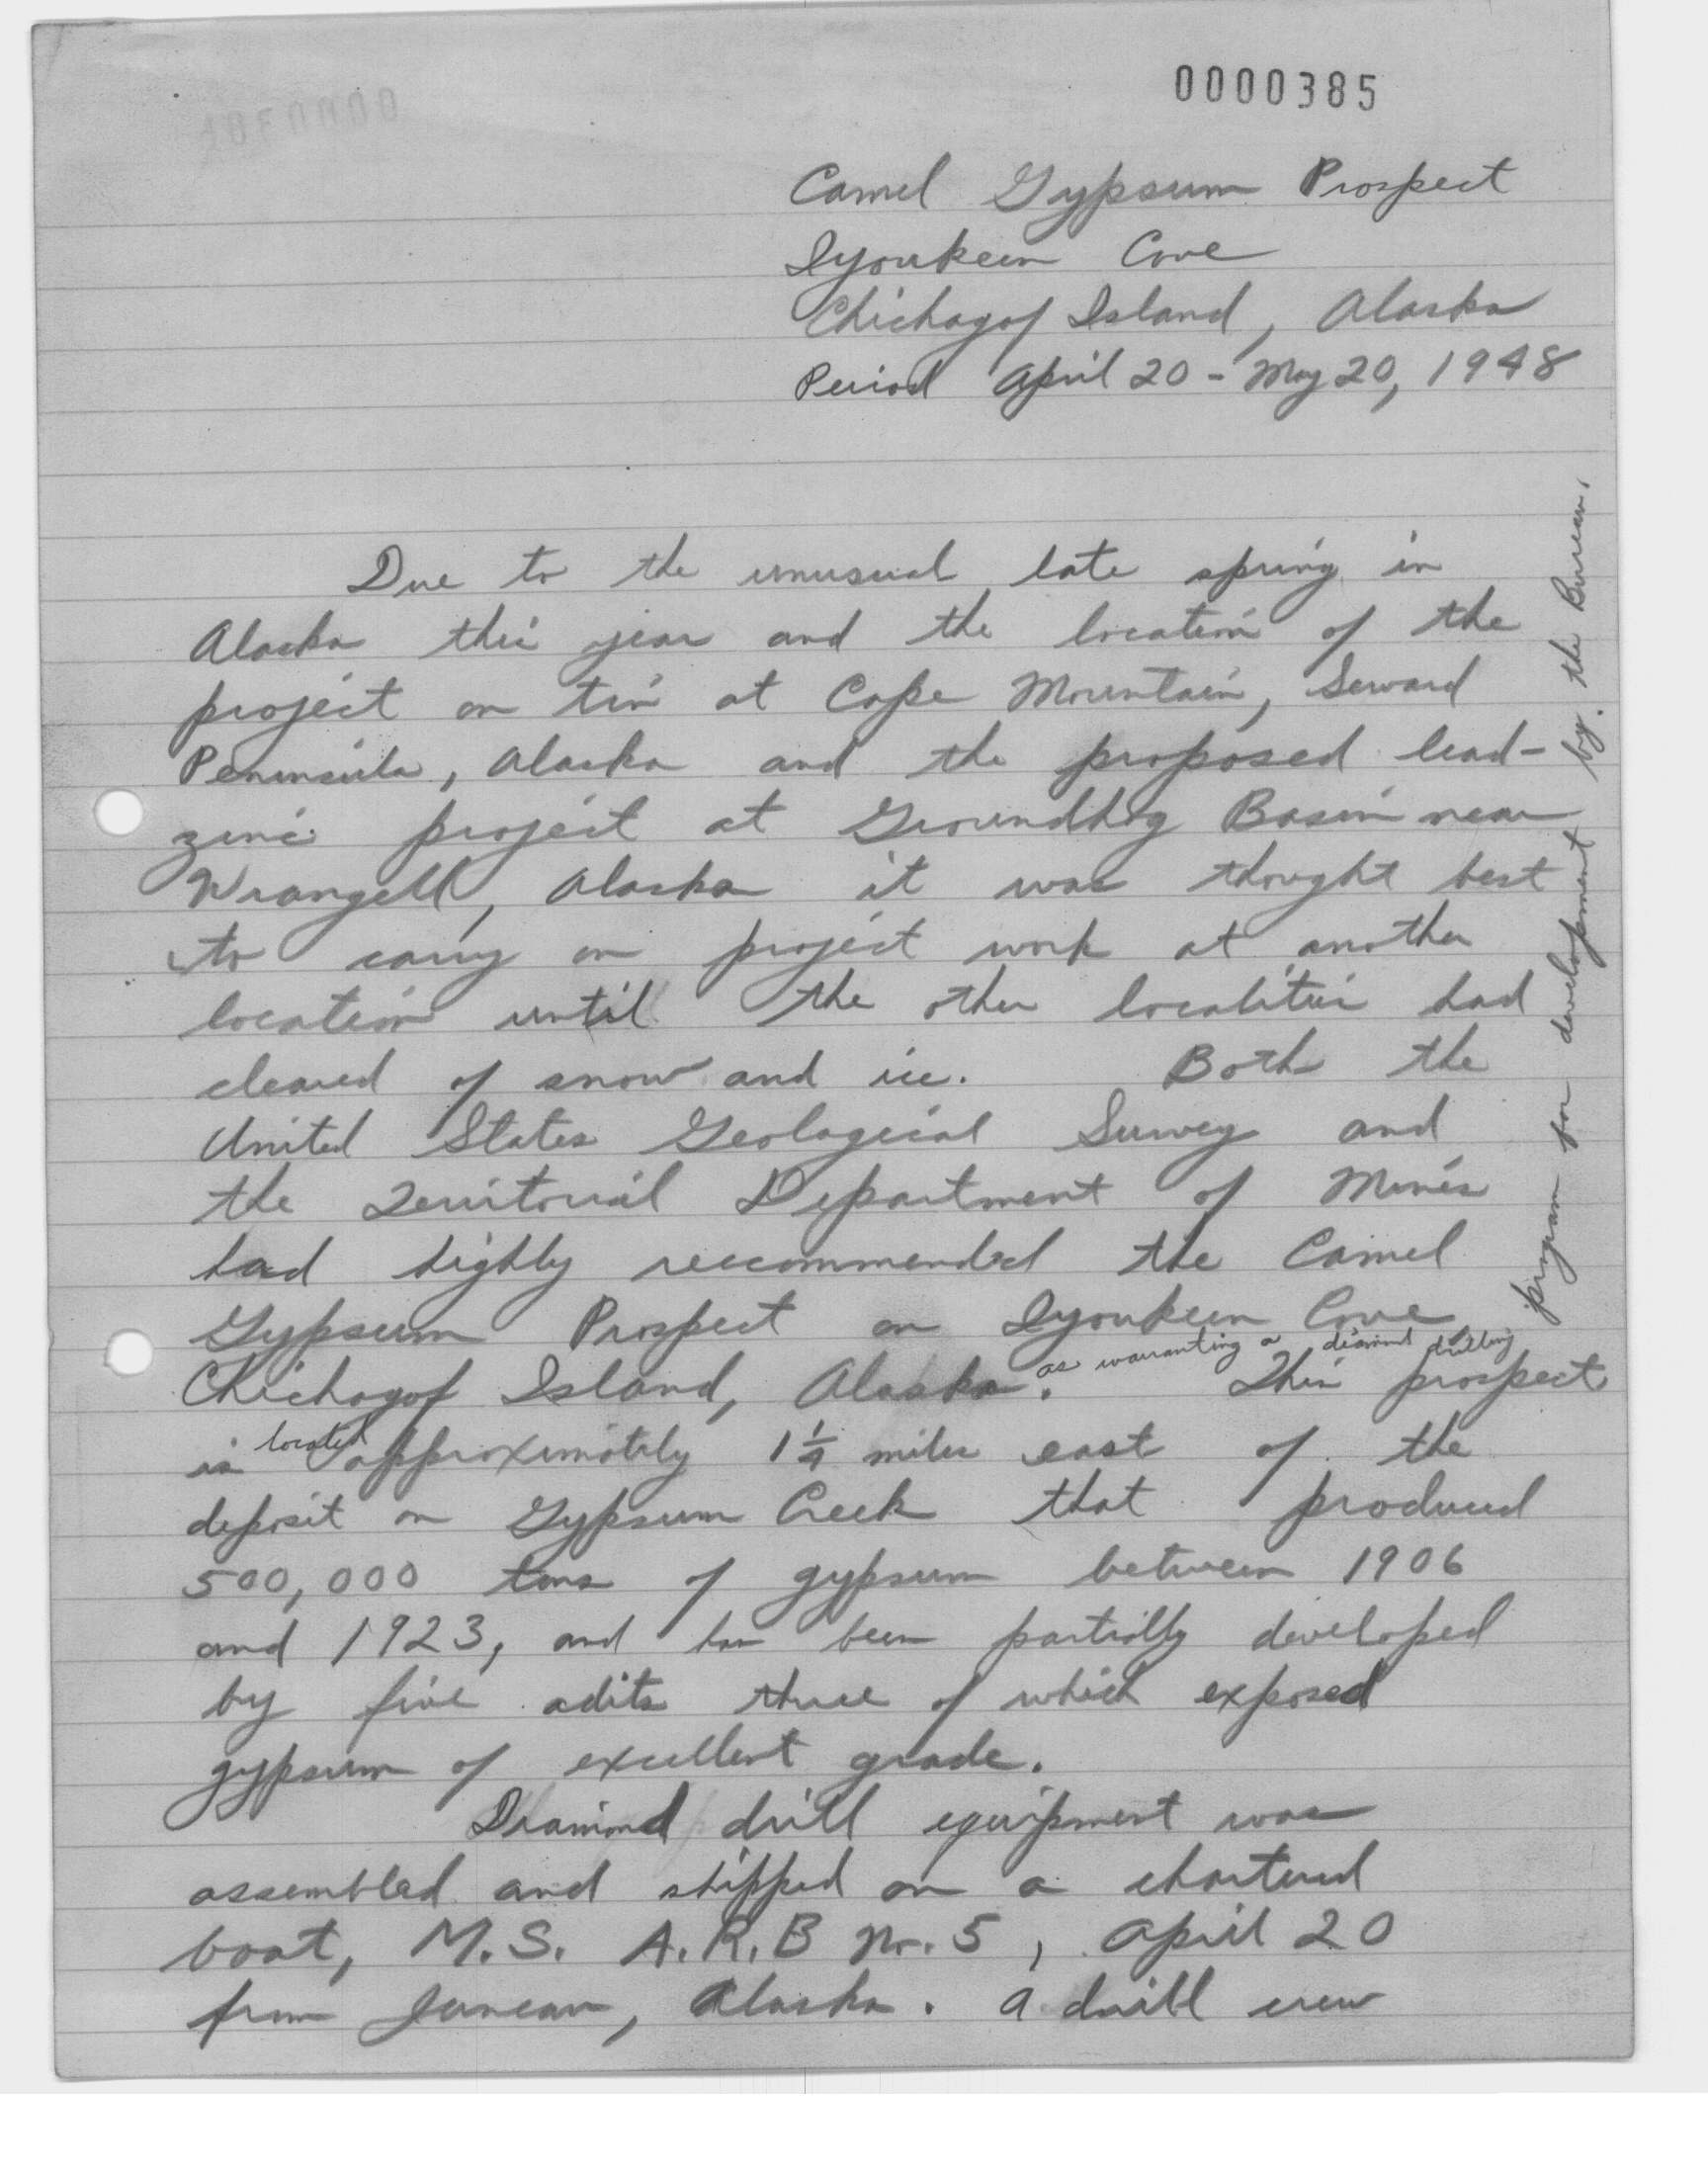 0000385
Camel Gypsum Prospect
Iyoukeen Cove
Chichagof Island, Alaska
Period April 20 - May 20, 1948
Due to the unusual late spring in
Alaska this year and the location of the
project on tin at Cape Mountain, Seward
Peninsula, Alaska and the proposed lead-
zinc project at Groundhog Basin near
Wrangell, Alaska it was thought best
to carry on project work at another
location until the other localities had
cleared of snow and ice. Both the
United States Geological Survey and
the Territorial Department of Mines
had highly reccommended the Camel
Gypsum Prospect on Iyoukeen Cove
as warranting a diamond drilling
program for development by the Bureau.
Chichagof Island, Alaska. This prospect
is located approximately 1 1/4 miles east of the
deposit on Gypsum Creek that produced
500,000 tons of gypsum between 1906
and 1923, and has been partially developed
by five adits three of which exposed
gypsum of excellent grade.
Diamond drill equipment was
assembled and shipped on a chartered
boat, M.S. A.R.B No. 5, April 20
from Juneau, Alaska. A drill crew